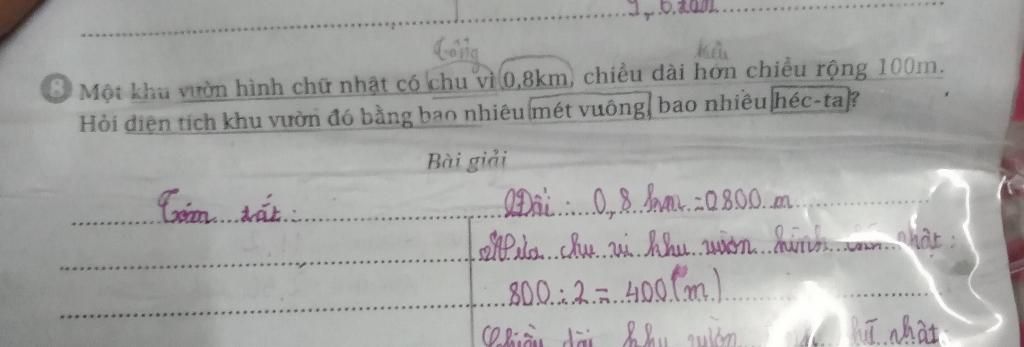 Tổng Hiệu
8 Một khu vườn hình chữ nhật có chu vi 0,8km, chiều dài hơn chiều rộng 100m.
Hỏi diện tích khu vườn đó bằng bao nhiêu mét vuông, bao nhiêu héc-ta?
Bài giải
Tóm tắt: Đổi: 0,8 km = 0800 m
Nửa chu vi khu vườn hình chữ nhật:
800 : 2 = 400 (m)
Chiều dài khu vườn chữ nhật: